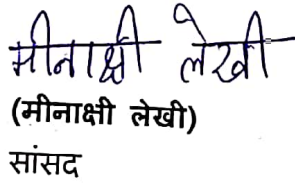 मीनाक्षी लेखी
(मीनाक्षी लेखी)
सांसद